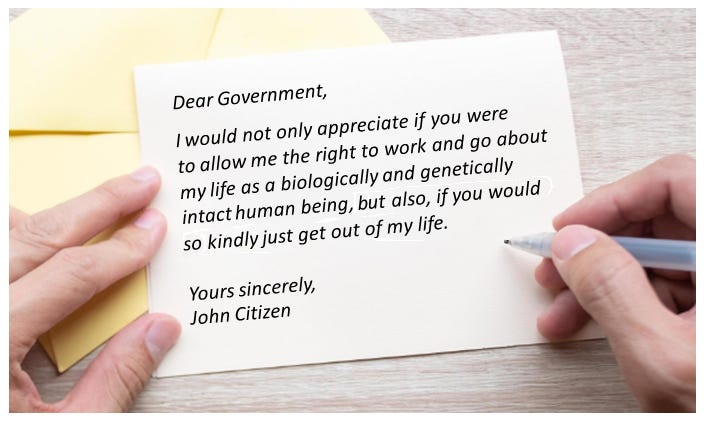 Dear Government,
I would not only appreciate if you were
to allow me the right to work and go about
my life as a biologically and genetically
intact human being, but also, if you would
so kindly just get out of my life.
Yours sincerely,
John Citizen